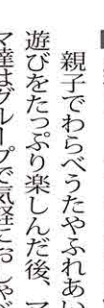 親子でわらべうたやふれあい
遊びをたっぷり楽しんだ後、マ
マ達はグループで気軽におしゃべ